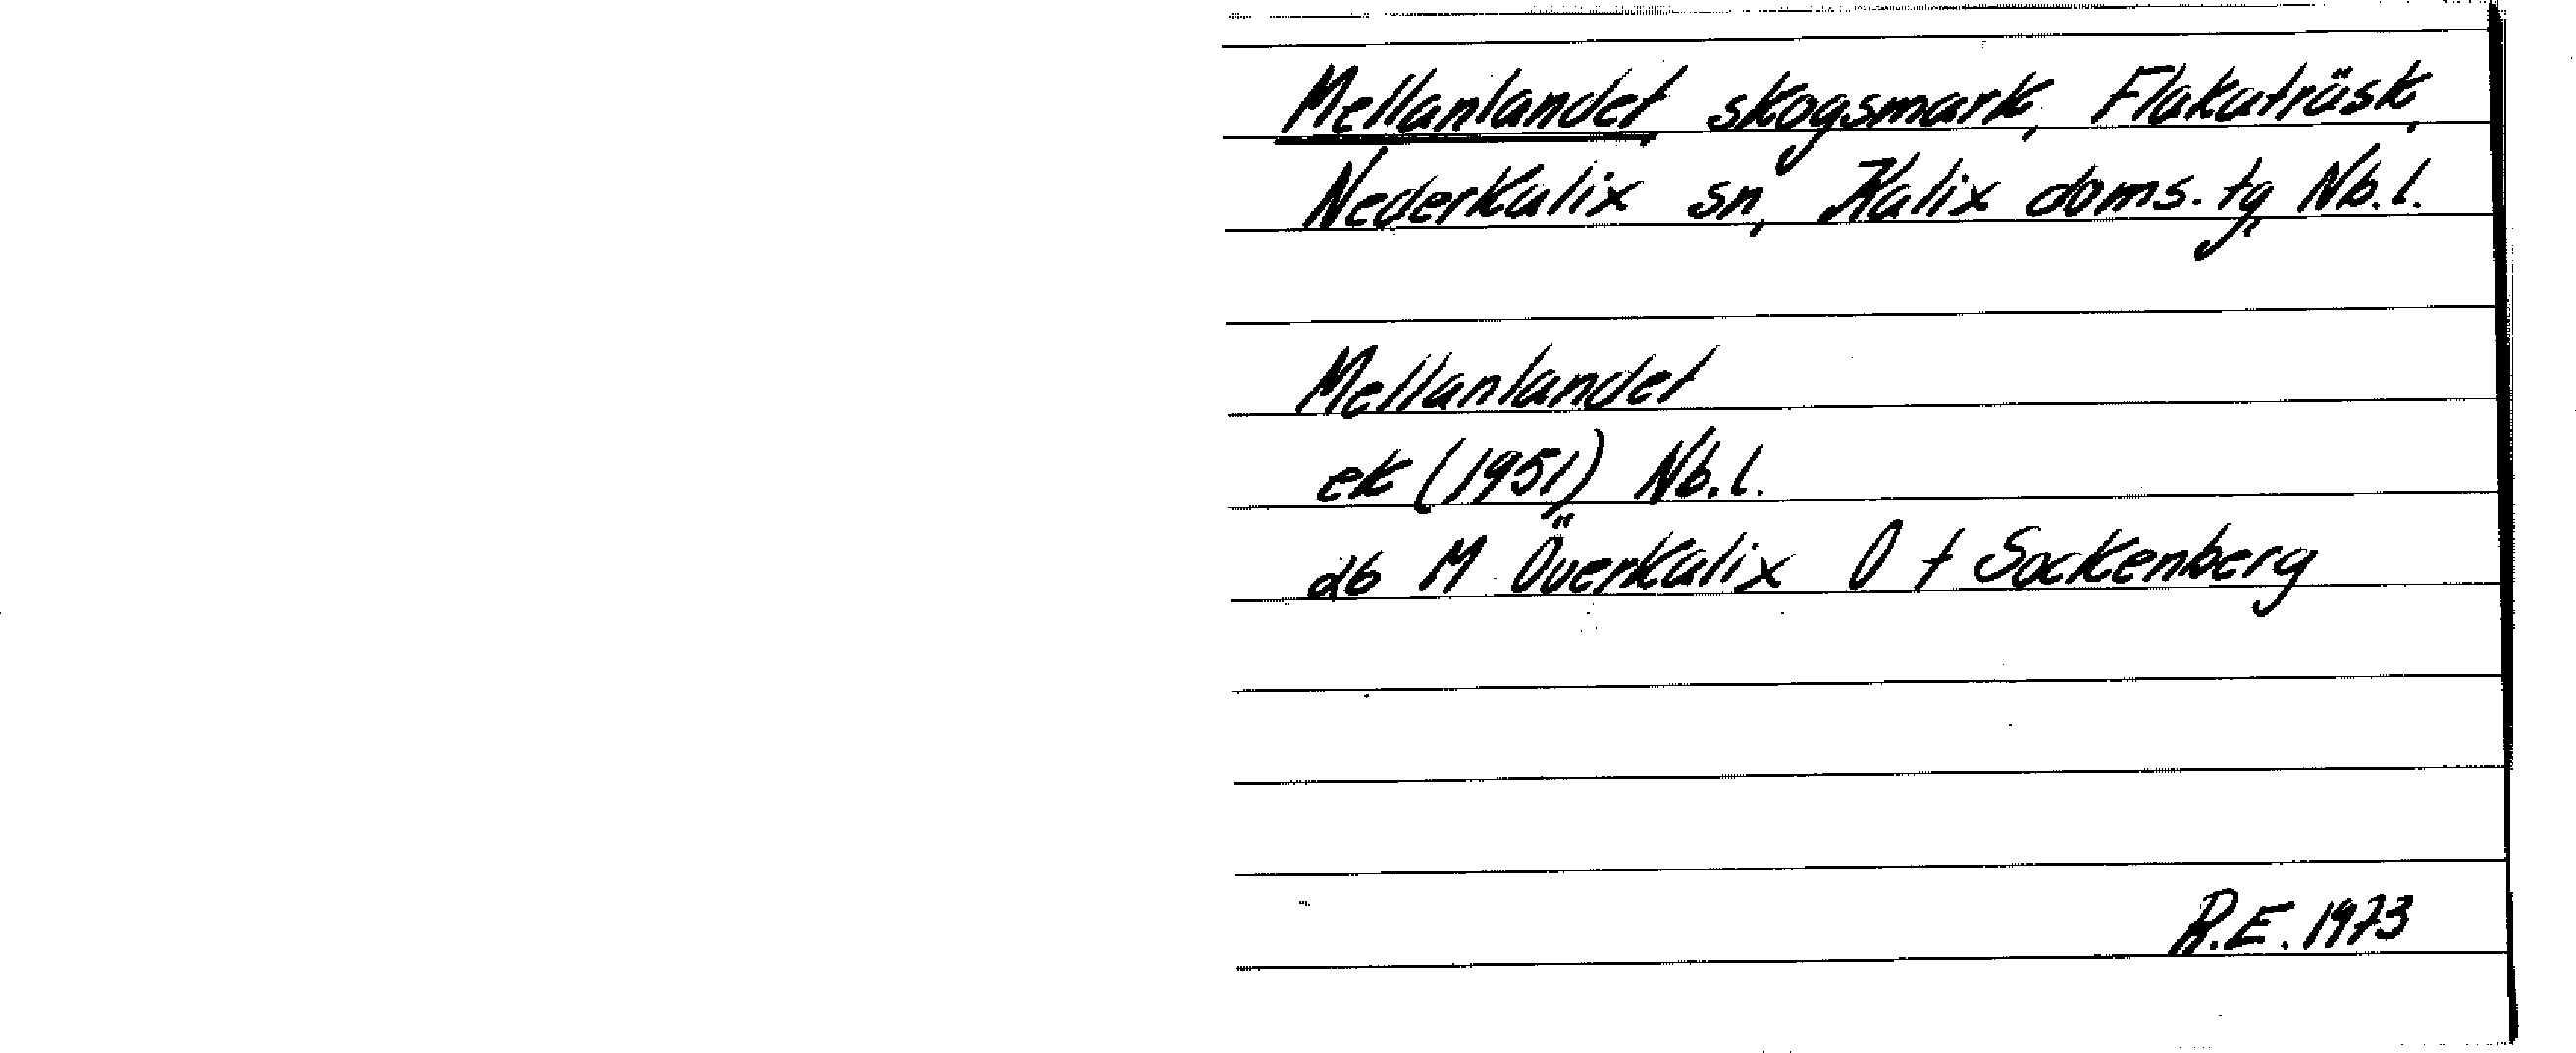 Mellanlandet, skogsmark, Flakaträsk,
Nederkalix sn, Kalix doms. tg, Nb.l.
Mellanlandet
ek (1951) Nb.l.
db M Överkalix O f Sockenberg
R.E. 1973